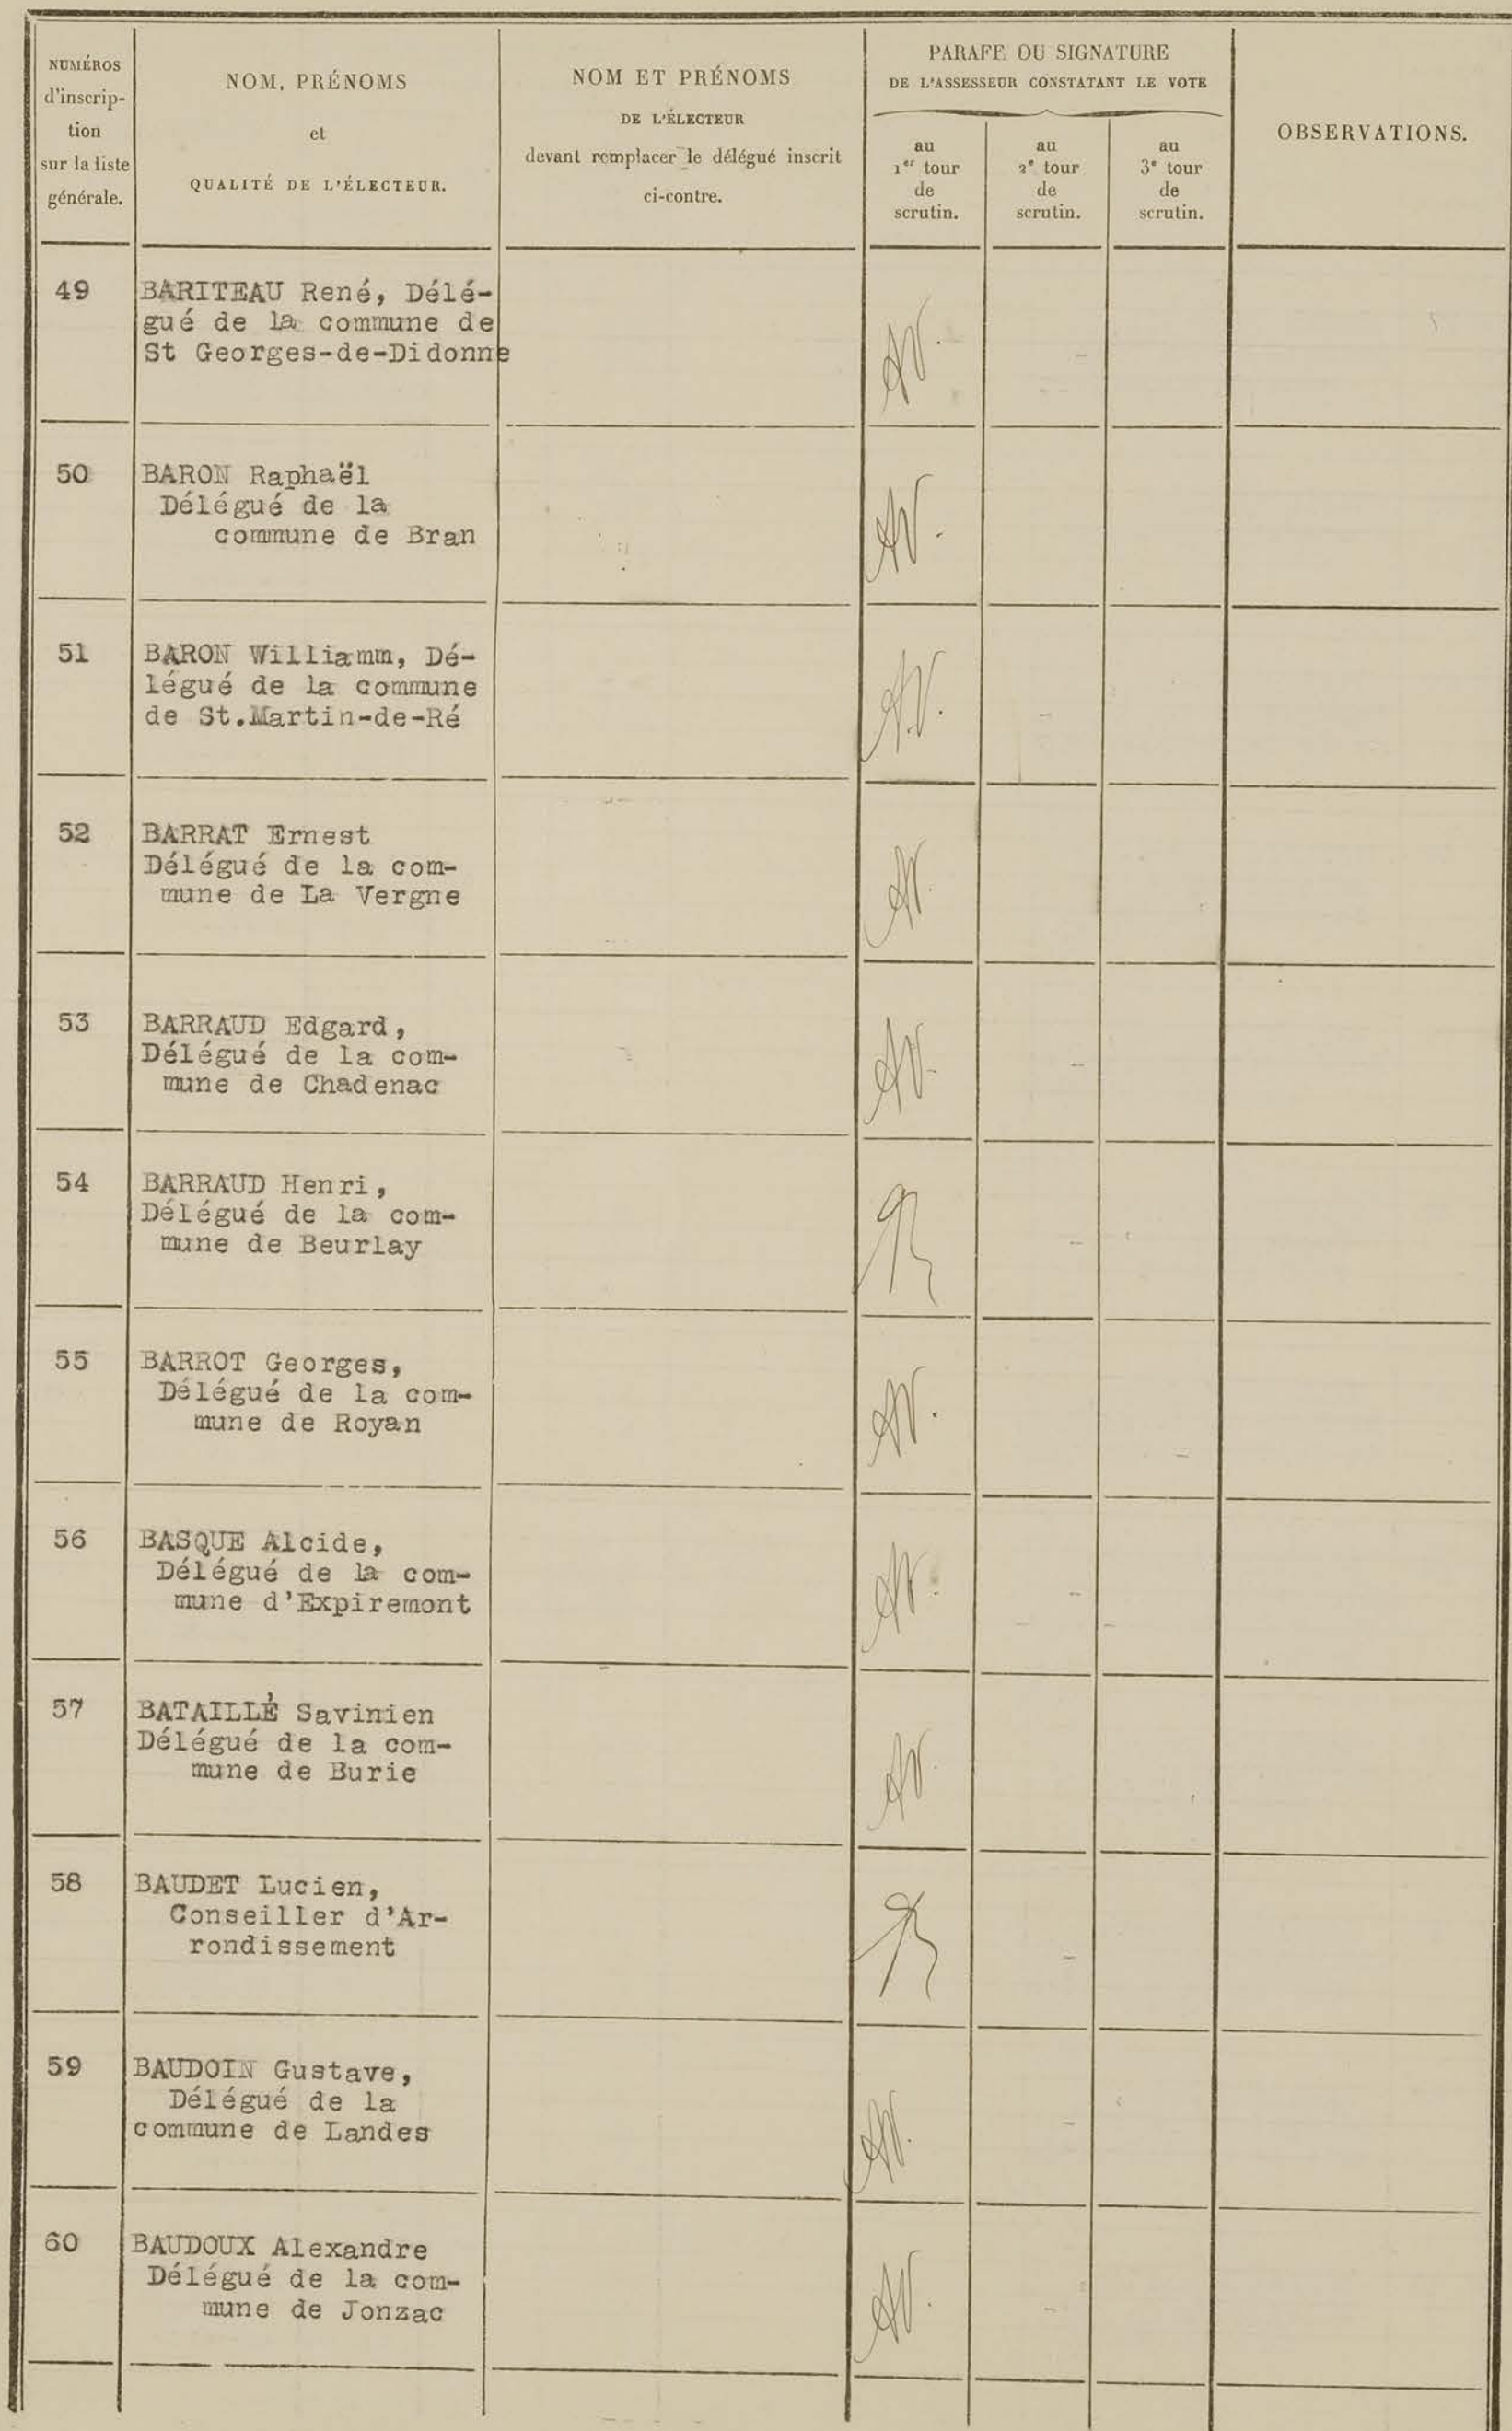 NUMÉROS
d'inscrip-
tion
sur la liste
générale.
NOM, PRÉNOMS
et
QUALITÉ DE L'ÉLECTEUR.
NOM ET PRÉNOMS
DE L'ÉLECTEUR
devant remplacer le délégué inscrit
ci-contre.
PARAFE OU SIGNATURE
DE L'ASSESSEUR CONSTATANT LE VOTE
au
1er tour
de
scrutin.
au
2e tour
de
scrutin.
au
3e tour
de
scrutin.
OBSERVATIONS.
49
BARITEAU René, Délé-
gué de la commune de
St Georges-de-Didonne
AV.
50
BARON Raphaël
Délégué de la
commune de Bran
AV.
51
BARON Williamm, Dé-
légué de la commune
de St.Martin-de-Ré
AV.
52
BARRAT Ernest
Délégué de la com-
mune de La Vergne
AV.
53
BARRAUD Edgard,
Délégué de la com-
mune de Chadenac
AV.
54
BARRAUD Henri,
Délégué de la com-
mune de Beurlay
55
BARROT Georges,
Délégué de la com-
mune de Royan
AV.
56
BASQUE Alcide,
Délégué de la com-
mune d'Expiremont
AV.
57
BATAILLÉ Savinien
Délégué de la com-
mune de Burie
AV.
58
BAUDET Lucien,
Conseiller d'Ar-
rondissement
59
BAUDOIN Gustave,
Délégué de la
commune de Landes
AV.
60
BAUDOUX Alexandre
Délégué de la com-
mune de Jonzac
AV.